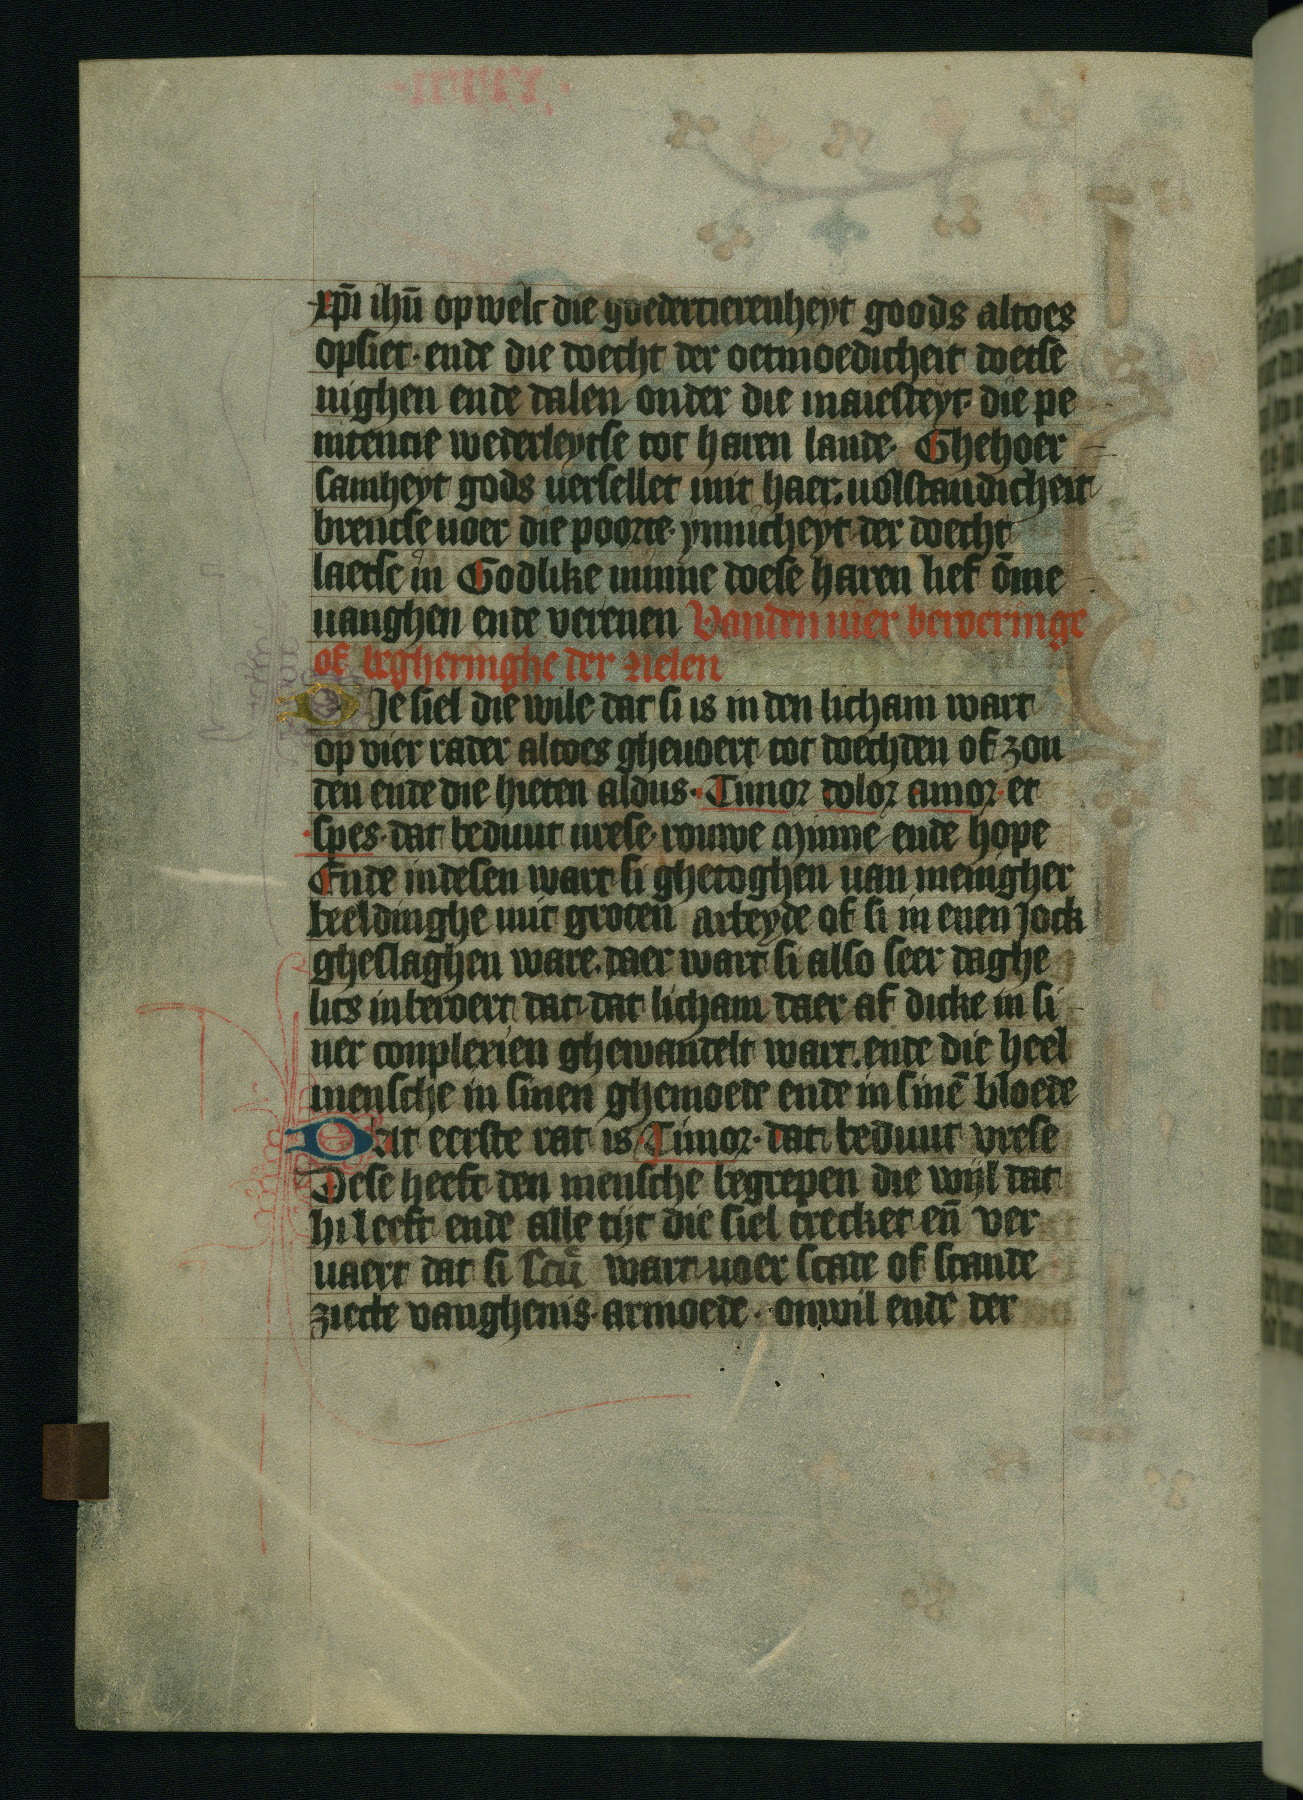 xp̄i ihū op welc die goedertierenheyt goods altoes
opsiet · ende die doecht der oetmoedicheit doetse
nighen ende dalen onder die maiesteyt · die pe
nitencie wederleytse tot haren lande · Ghehoer
samheyt gods versellet mit haer . volstandicheit
brenctse voer die poorte · ynnicheyt der doecht
laetse in Godlike minne doese haren lief ōme
vanghen ende verenen Vanden vier beroeringe
of begheringhe der zielen
Die siel die wile dat si is in den licham wart
op vier rader altoes ghevoert tot doechden of zon
den ende die hieten aldus · Timor dolor amor et
spes · dat beduut vrese · rouwe minne ende hope
Ende in desen wart si ghetoghen van menigher
beeldinghe mit groten arbeyde of si in enen jock
gheslaghen ware . daer wart si also seer daghe
lics in beroert dat dat licham daer af dicke in si
ner complexien ghewandelt wart . ende die heel
mensche in sinen ghemoede ende in sinē bloede
Dat eerste rat is · Timor · dat beduut vrese
Dese heeft den mensche begrepen die wijl dat
hi leeft ende alle tijt die siel trecket eñ ver
vaert dat si wart voer scade of scande
ziecte vanghenis · armoede · onwil ende der